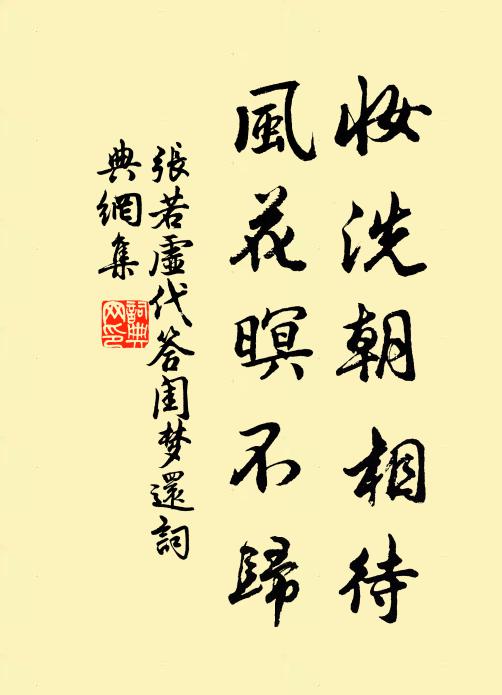 妆洗朝相待
風花暝不歸
張若虛代答闺梦還詞
典網集
詞典
网印